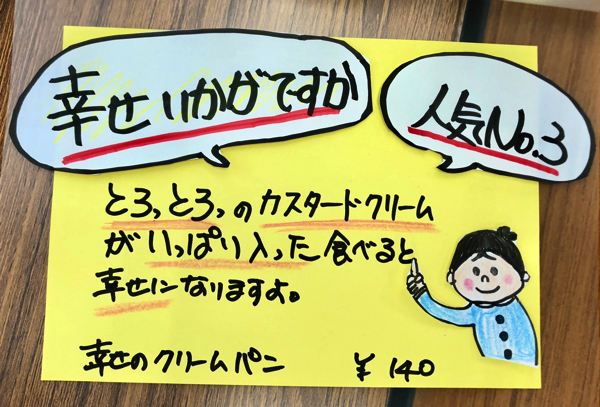 幸せいかがですか
人気No.3
とろっとろっのカスタードクリーム
がいっぱり入った食べると
幸せになりますよ。
幸せのクリームパン ¥140